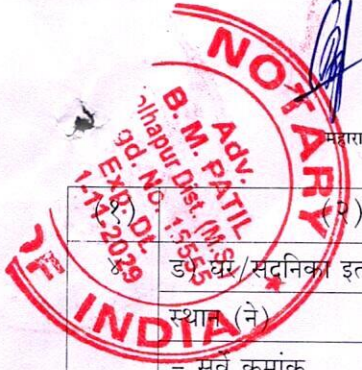 NOTARY
Adv.
B. M. PATIL
olhapur Dist. (M.S)
gd. NO. 15555
Exp. Dt.
1-11-2029
OF INDIA
महारा
(१) (२)
४. ड) घर/सदनिका इत
स्थान (ने)
– सर्वे क्रमांक